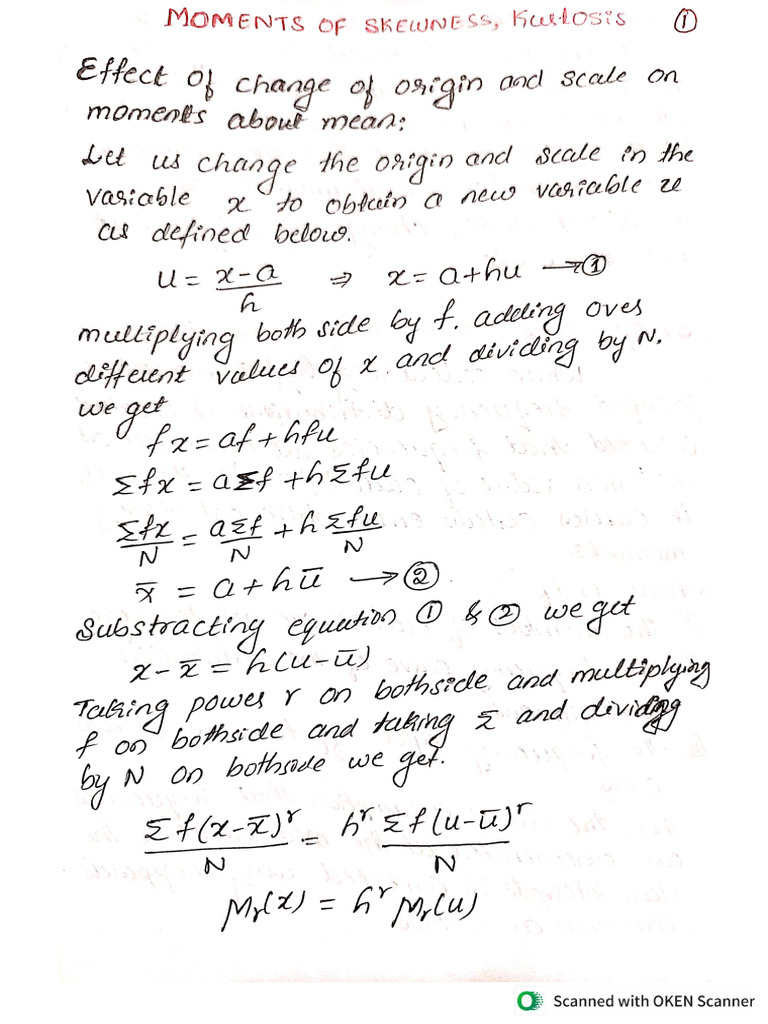 MOMENTS OF SKEWNESS, Kurtosis ①
Effect of change of origin and scale on
moments about mean:
Let us change the origin and scale in the
variable x to obtain a new variable u
as defined below.
u = x-a/h ⇒ x = a+hu →①
multiplying both side by f. adding over
different values of x and dividing by N.
we get
fx = af + hfu
Σfx = aΣf + hΣfu
Σfx/N = aΣf/N + h Σfu/N
x̄ = a + hū →②
Substracting equation ① & ② we get
x - x̄ = h(u-ū)
Taking power r on bothside and multiplying
f on bothside and taking Σ and dividing
by N on bothside we get.
Σf(x-x̄)ʳ/N = hʳ Σf(u-ū)ʳ/N
μᵣ(x) = hʳ μᵣ(u)
Scanned with OKEN Scanner